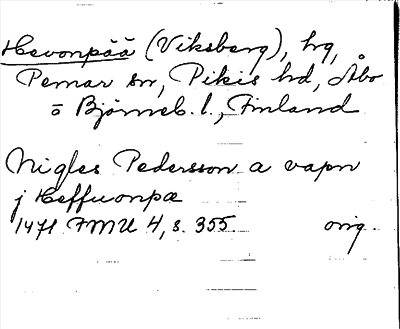 Hevonpää (Viksberg), hg,
Pemar sn, Pikis hd, Åbo
o Björneb. l., Finland
Nigles Pedersson a vapn
j Heffuonpæ
1471 FMU 4, s. 355. orig.